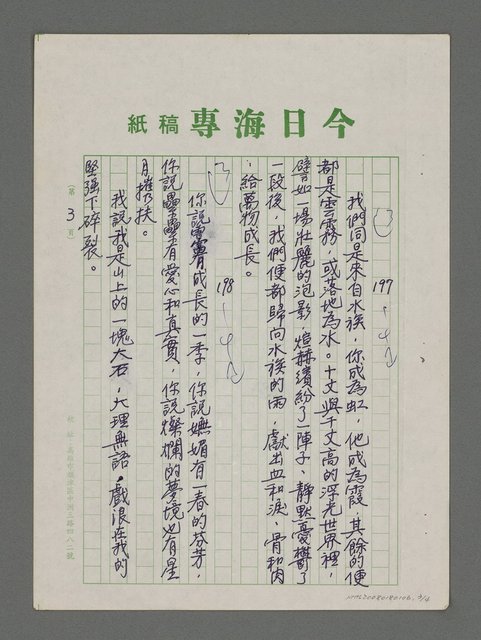 今日海專稿紙
197
我們同是來自水族，你成為虹，他成為霞，其餘的便
都是雲霧，或落地為水。十丈與千丈高的浮光世界裡，
譬如一場壯麗的泡影，煊赫繽紛了一陣子，靜默憂鬱了
一段後，我們便都歸向水族的雨，獻出血和淚，骨和肉
，給萬物成長。
198
你說 成長的一季，你說嫵媚有一春的芬芳，
你說 有愛心和真實，你說燦爛的夢境也有星
月攙扶。
我說我是山上的一塊大石，大理無語。戲浪在我的
堅強下碎裂。
（第3頁）